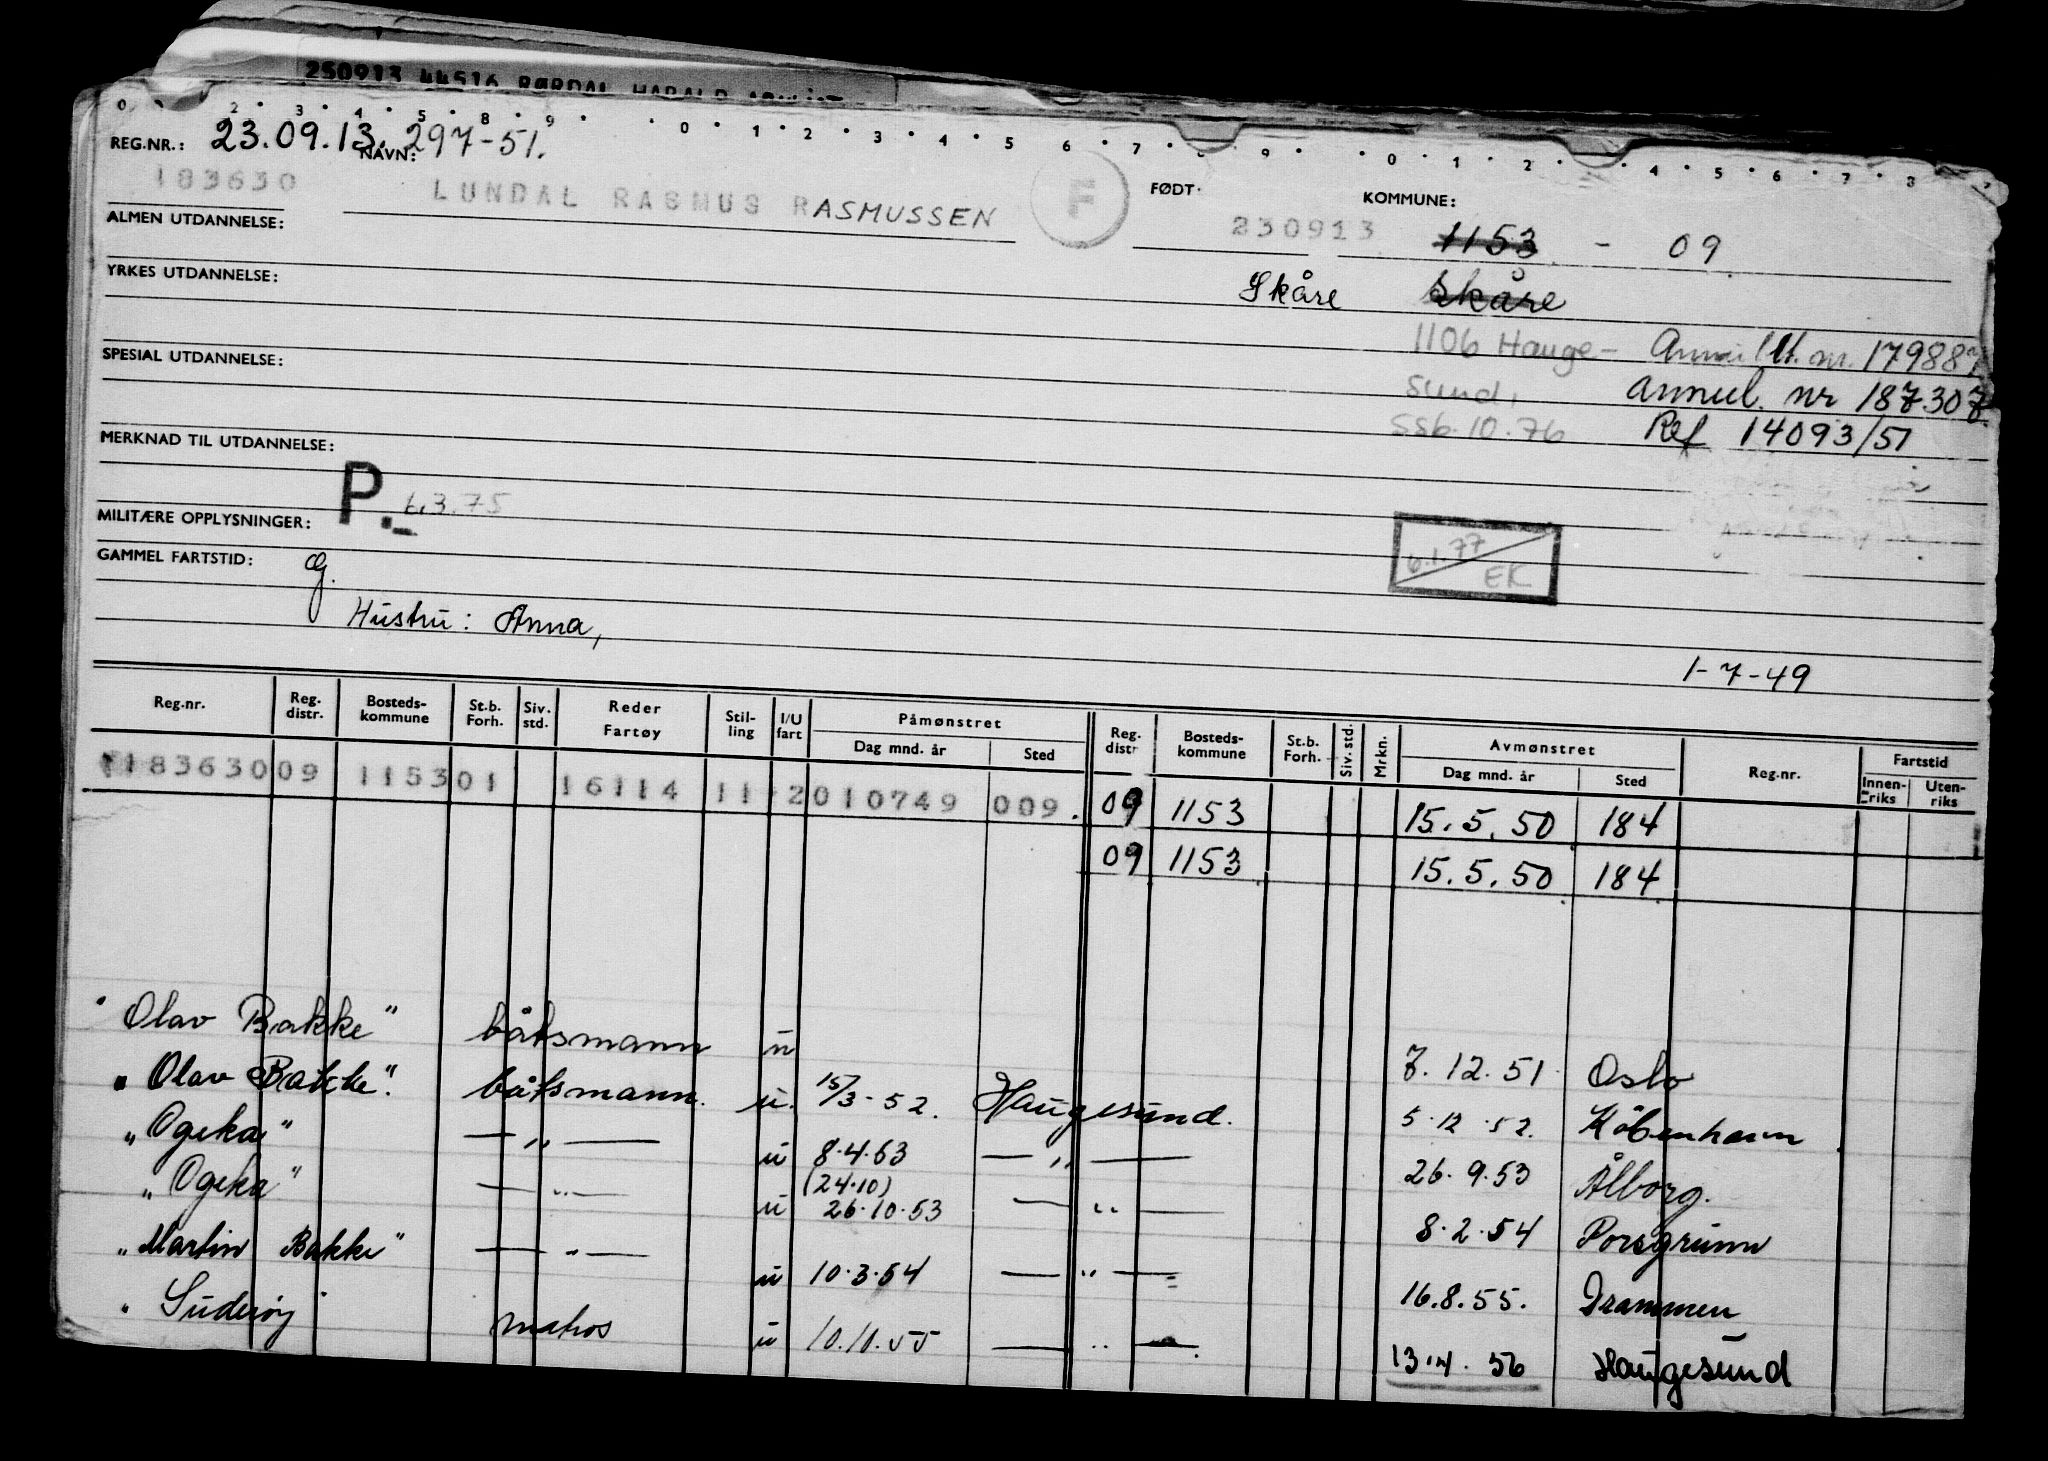 250913 44516 RØRDAL HARALD
0 2 3 4 5 8 9 0 1 2 3 4 5 6 7 8 9 0 1 2 4 5 6 7 8
REG.NR.: 23.09.13. NAVN: 297-51.
183630 LUNDAL RASMUS RASMUSSEN F FØDT: 230913 KOMMUNE: 1153 - 09
ALMEN UTDANNELSE:
YRKES UTDANNELSE: Skåre Skåre
1106 Hauge- Annull. nr. 179887
SPESIAL UTDANNELSE: sund, annul. nr 187307
SSB.10.76 Ref 14093/51
MERKNAD TIL UTDANNELSE:
P. 6.3.75
MILITÆRE OPPLYSNINGER: 6.1.77 EK
GAMMEL FARTSTID: G.
Hustru: Anna,
1-7-49
Reg.nr. Reg. distr. Bosteds-kommune St.b. Forh. Siv. std. Reder Fartøy Stil-ling I/U fart Påmønstret Dag mnd. år Sted Reg. distr Bosteds-kommune St.b. Forh. Siv. std. Mrkn. Avmønstret Dag mnd. år Sted Reg.nr. Fartstid Innen-riks Uten-riks
183630 09 1153 01 16114 11 2 010749 009. 09 1153 15.5.50 184
09 1153 15.5.50 184
"Olav Bakke" båtsmann u 7.12.51 Oslo
"Olav Bakke". båtsmann. u. 15/3-52. Haugesund. 5.12.52. København
"Ogeka" — " — u 8.4.63 — " — 26.9.53 Ålborg.
(24.10)
"Ogeka" — " — u 26.10.53 — " — 8.2.54 Porsgrunn
"Martin Bakke" — " — u 10.3.54 — " — 16.8.55. Drammen
"Suderøy" matros u 10.10.55 — " — 13.4.56 Haugesund